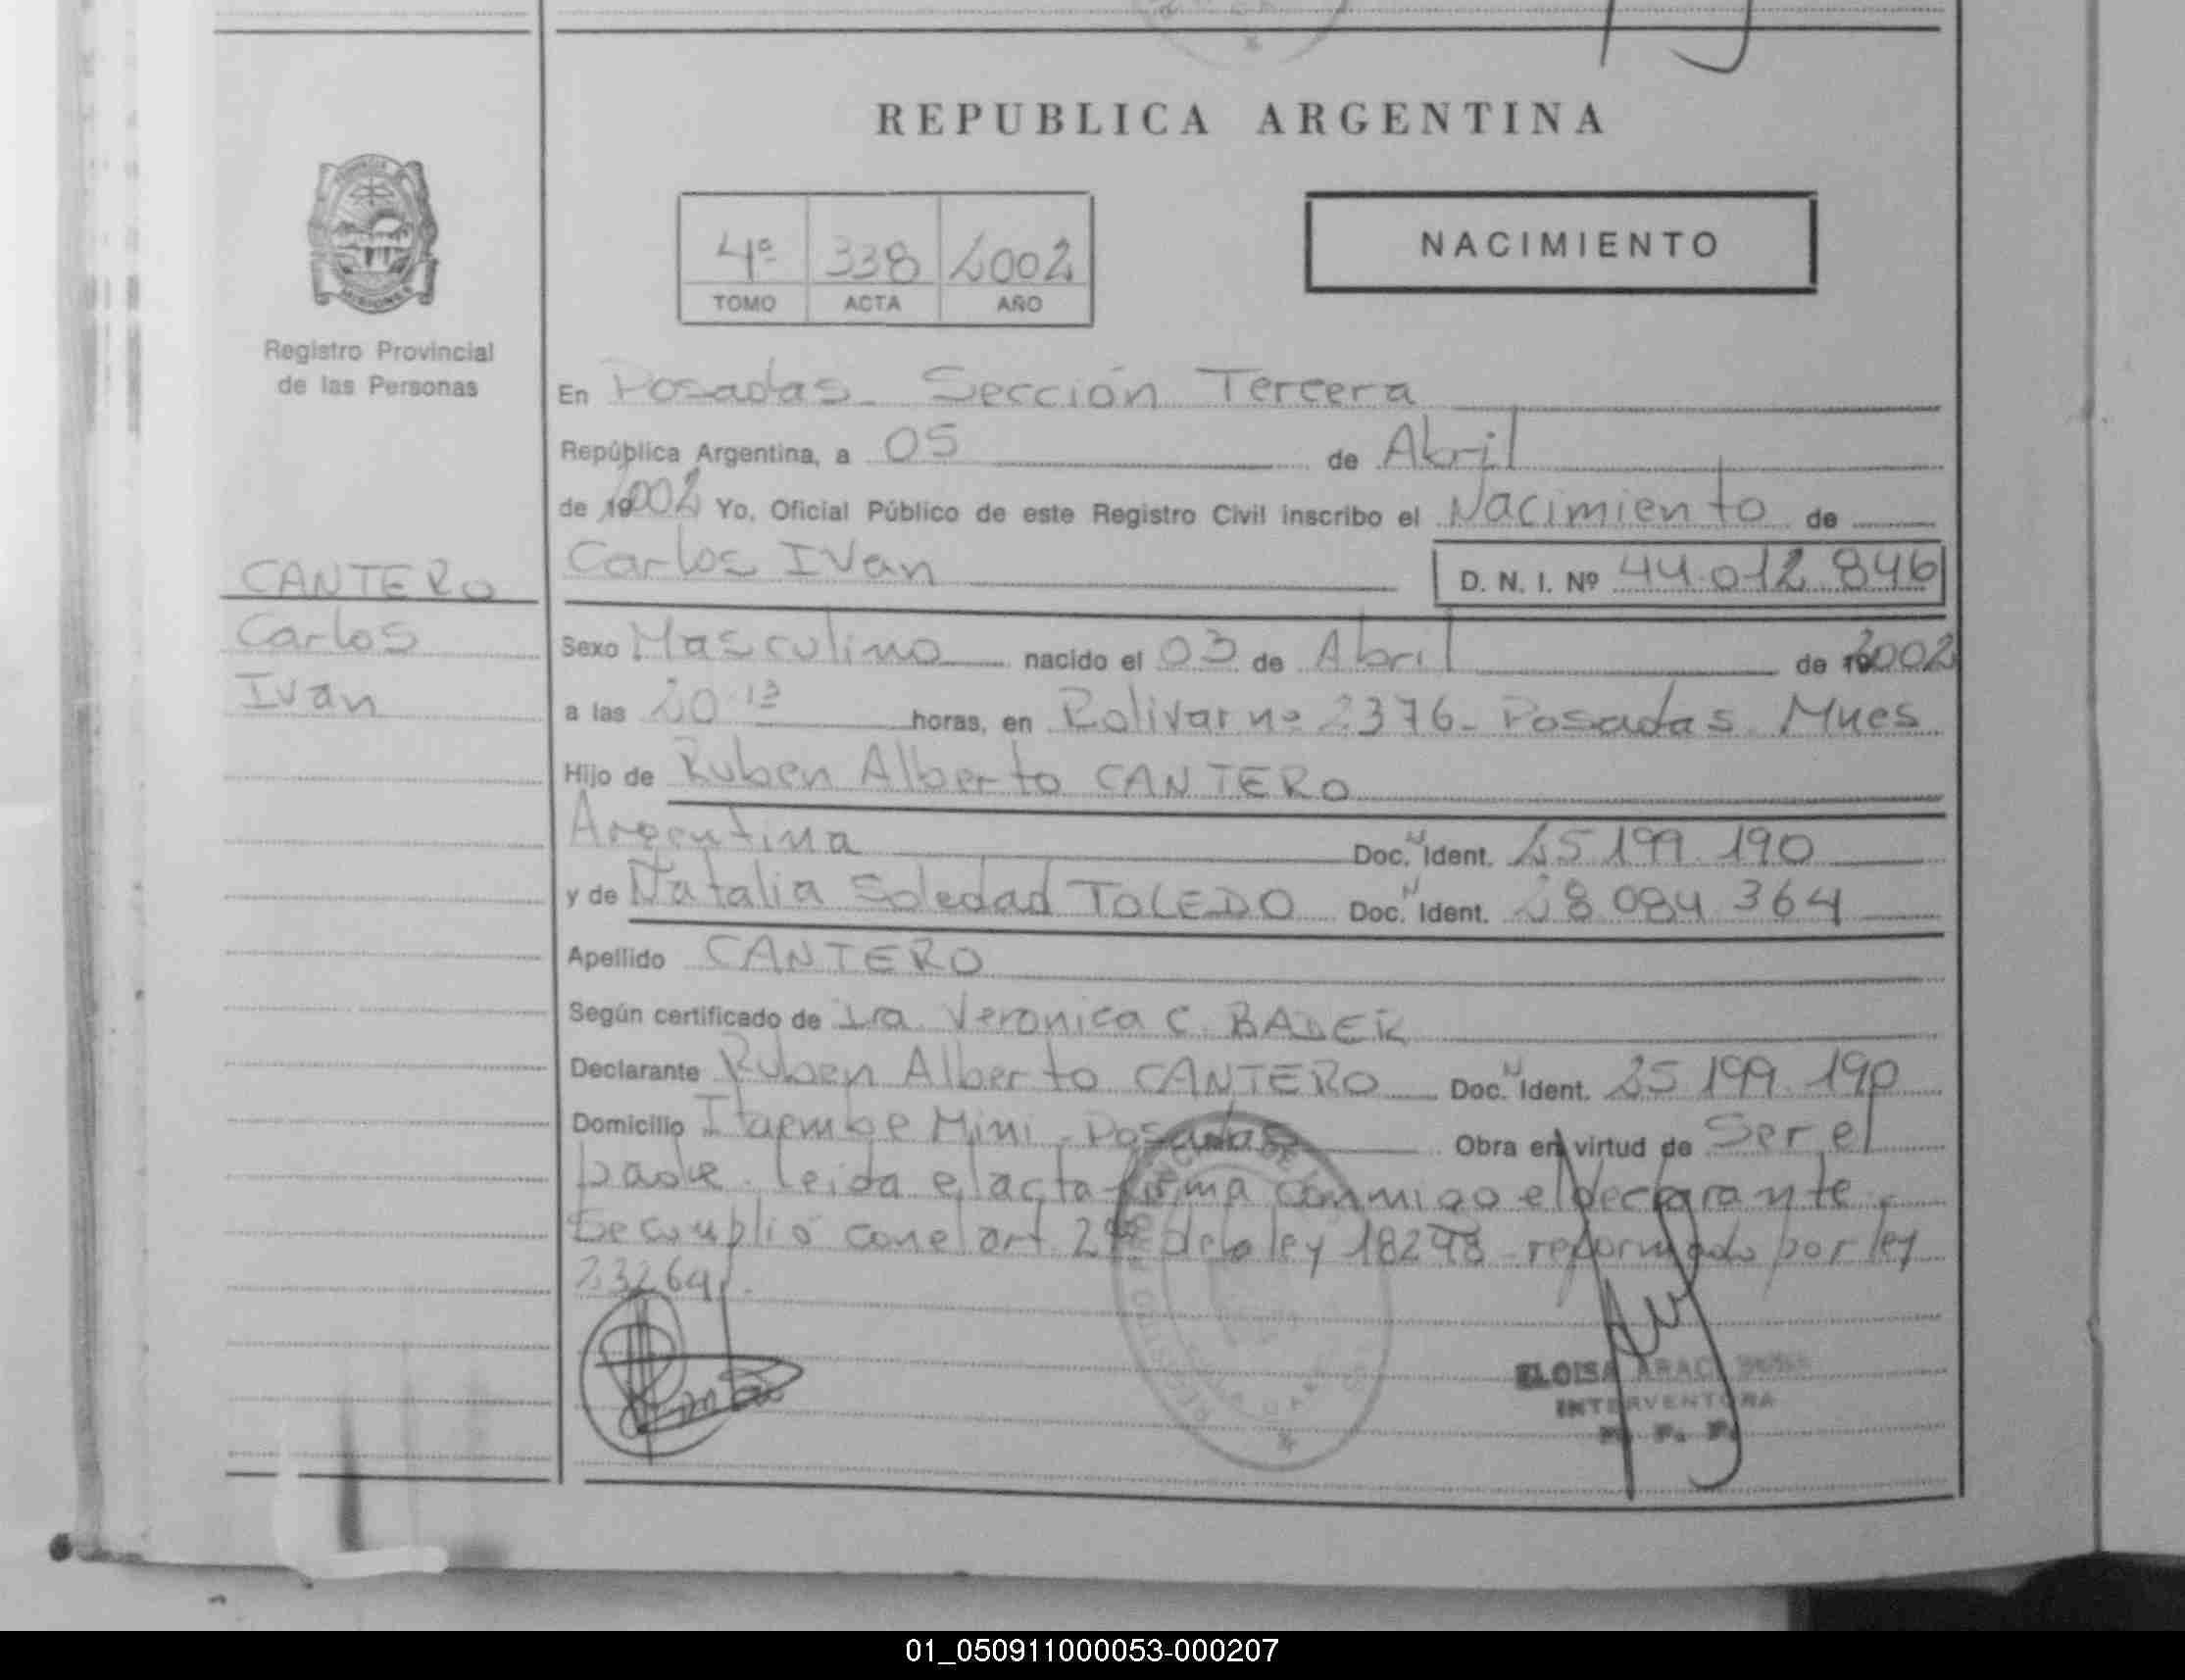 REPUBLICA ARGENTINA
NACIMIENTO
4ª 338 2002
TOMO ACTA AÑO
Registro Provincial
de las Personas
En Posadas - Sección Tercera
República Argentina, a 05 de Abril
de 2002 Yo, Oficial Público de este Registro Civil inscribo el Nacimiento de
Carlos Ivan D. N. I. Nº 44.012.846
CANTERO
Carlos
Ivan
Sexo Masculino nacido el 03 de Abril de 2002
a las 20.13 horas, en Bolivar nº 2376 - Posadas Mnes
Hijo de Ruben Alberto CANTERO
Argentina Doc. N Ident. 25.199.190
y de Natalia Soledad TOLEDO Doc. N Ident. 28 084 364
Apellido CANTERO
Según certificado de Dra. Veronica C.
Declarante Ruben Alberto CANTERO Doc. N Ident. 25.199.190
Domicilio Itaembe Mini - Posadas Obra en virtud de Ser el
padre. Leida el acta firma conmigo el declarante.
Se cumplió con el art. de la ley reformado por ley
23264.
ELOISA
INTERVENTORA
01_050911000053-000207